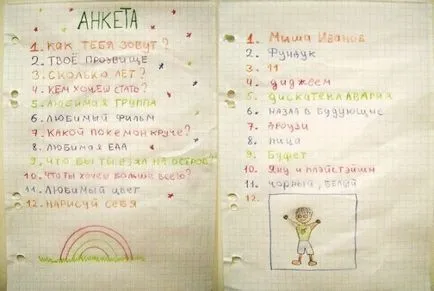 АНКЕТА
1. КАК ТЕБЯ ЗОВУТ?
2. ТВОЁ ПРОЗВИЩЕ
3. СКОЛЬКО ЛЕТ?
4. КЕМ ХОЧЕШ СТАТЬ?
5. ЛЮБИМАЯ ГРУППА
6. ЛЮБИМЫЙ ФИЛЬМ
7. КАКОЙ ПОКЕМОН КРУЧЕ?
8. ЛЮБИМАЯ ЕДА
9. ЧТО БЫ ТЫ ВЗЯЛ НА ОСТРОВ?
10. ЧТО ТЫ ХОЧЕШ БОЛЬШЕ ВСЕГО?
11. ЛЮБИМЫЙ ЦВЕТ
12. НАРИСУЙ СЕБЯ
1. Мыша Иванов
2. Фундук
3. 11
4. диджеем
5. дискатека авария
6. назад в будующие
7. дроузи
8. пица
9. Буфет
10. Яну и плэйстэйшн
11. чорный, белый
12.